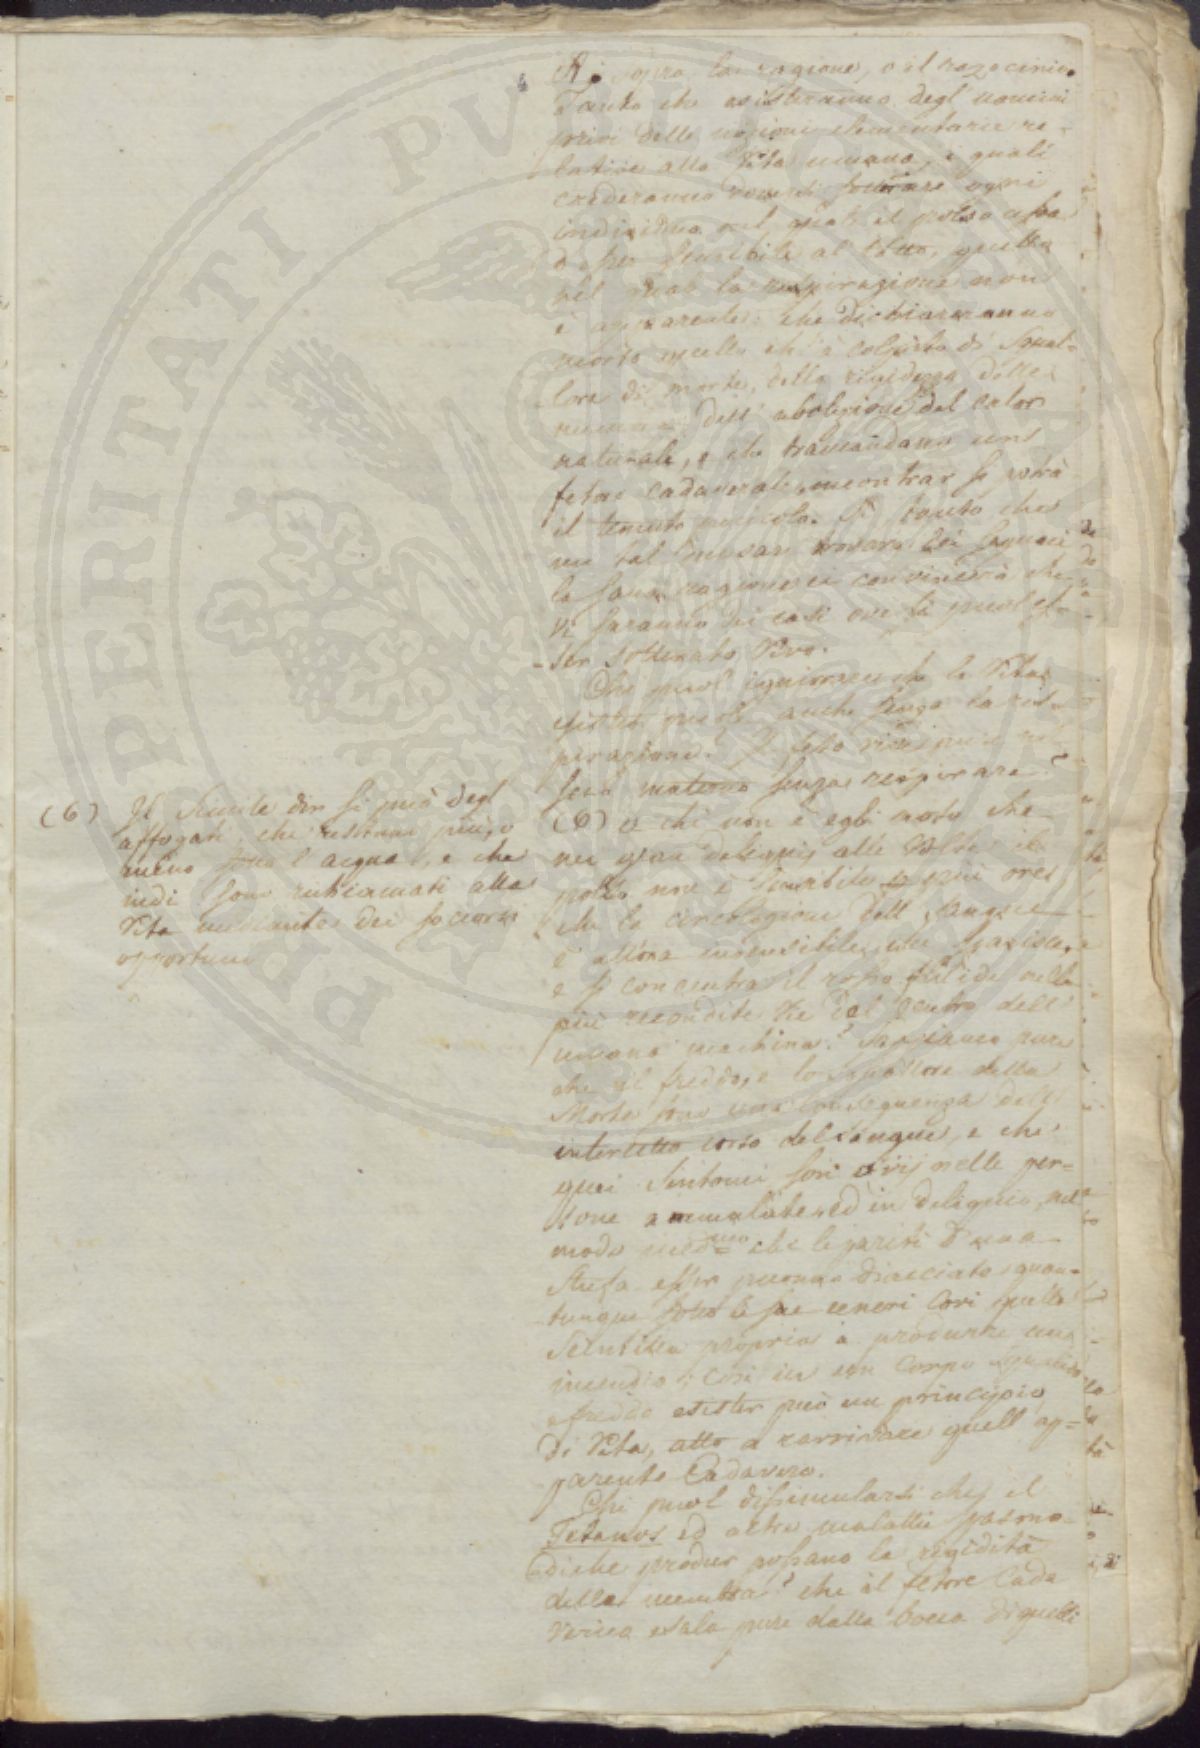 sopra la ragione, o il raziocinio.
Tanto che esisteranno degl' uomini
privi delle nozioni elementarie re-
lative alla Vita umana, i quali
crederanno doversi sotterrare ogni
individuo nel quale il polso cessa
d'esser sensibile al tatto, quello
nel quale la respirazione non
è apparente: che dichiareranno
morto quello ch' è colpito di squal-
lore di morte, della rigidezza delle
membra, dell' abolizione del calor
naturale, e che tramandano un
fetore cadaverale, incontrar si potrà
il temuto pericolo. Fi tanto che
un tal pensar troverà dei seguaci
la sana ragione ci convincerà che
vi saranno dei casi ove si puol es-
ser sotterrato vivo.
Chi puol ignorare che la Vita
esister puole anche senza la res-
pirazione? Il feto vive pure nel
seno materno senza respirare?
(6) e chi non è egli noto che
nei gran deliquij alle volte il
polso non è sensibile
che la circolazione dell' sangue
è allora insensibile, che sparisce,
e si concentra il rosso fluido nelle
più recondite vie del centro dell'
umana machina? Sappiamo pure
che il freddo, e lo squallore della
Morte sono una conseguenza dell'
intercetto corso del sangue, e che
quei sintomi son ovvij nelle per-
sone ammalate, ed in deliquio, nel
modo med.mo che le pareti d' una
stufa esser puonno diacciate quan-
tunque sotto le sue ceneri covi quella
Scintilla propria a produrre un
incendio; così in un Corpo squallido
e freddo esister può un principio
di Vita, atto a ravvivare quell' ap-
parente Cadavero.
Chi puol dissimularsi che il
Tetanos ed altre malattie spasmo-
diche produr possano la rigidità
delle membra? che il fetore Cada
verico esala pure dalla bocca di quelli
(6) Il simile dir si può degl'
affogati, che restano più, o
meno sotto l' acqua, e che
indi sono richiamati alla
Vita mediante dei soccorsi
opportuni